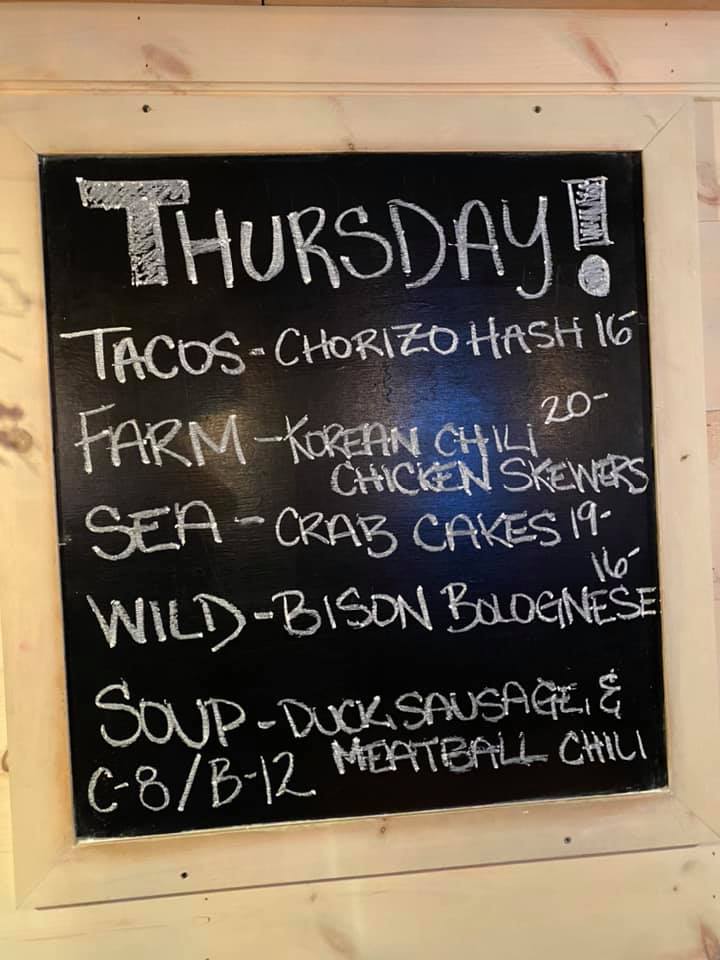 THURSDAY!
TACOS - CHORIZO HASH 16-
FARM - KOREAN CHILI 20-
CHICKEN SKEWERS
SEA - CRAB CAKES 19-
WILD - BISON BOLOGNESE 16-
SOUP - DUCK SAUSAGE &
MEATBALL CHILI
C-8/B-12